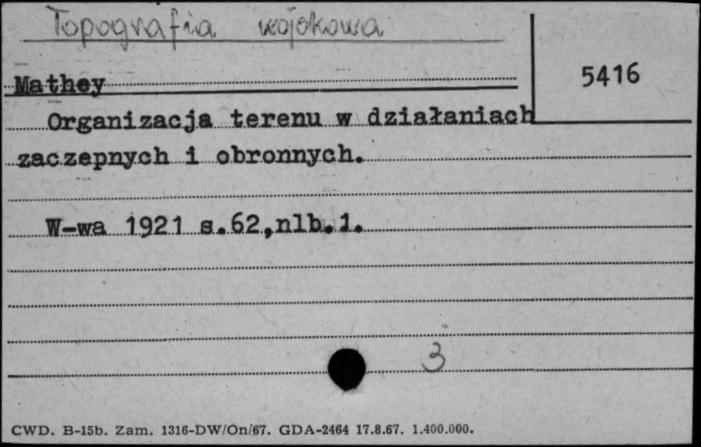 Topografia wojskowa
5416
Mathey
Organizacja terenu w działaniach
zaczepnych i obronnych.
W-wa 1921 s.62,nlb.1.
3
CWD. B-15b. Zam. 1316-DW/On/67. GDA-2464 17.8.67. 1.400.000.